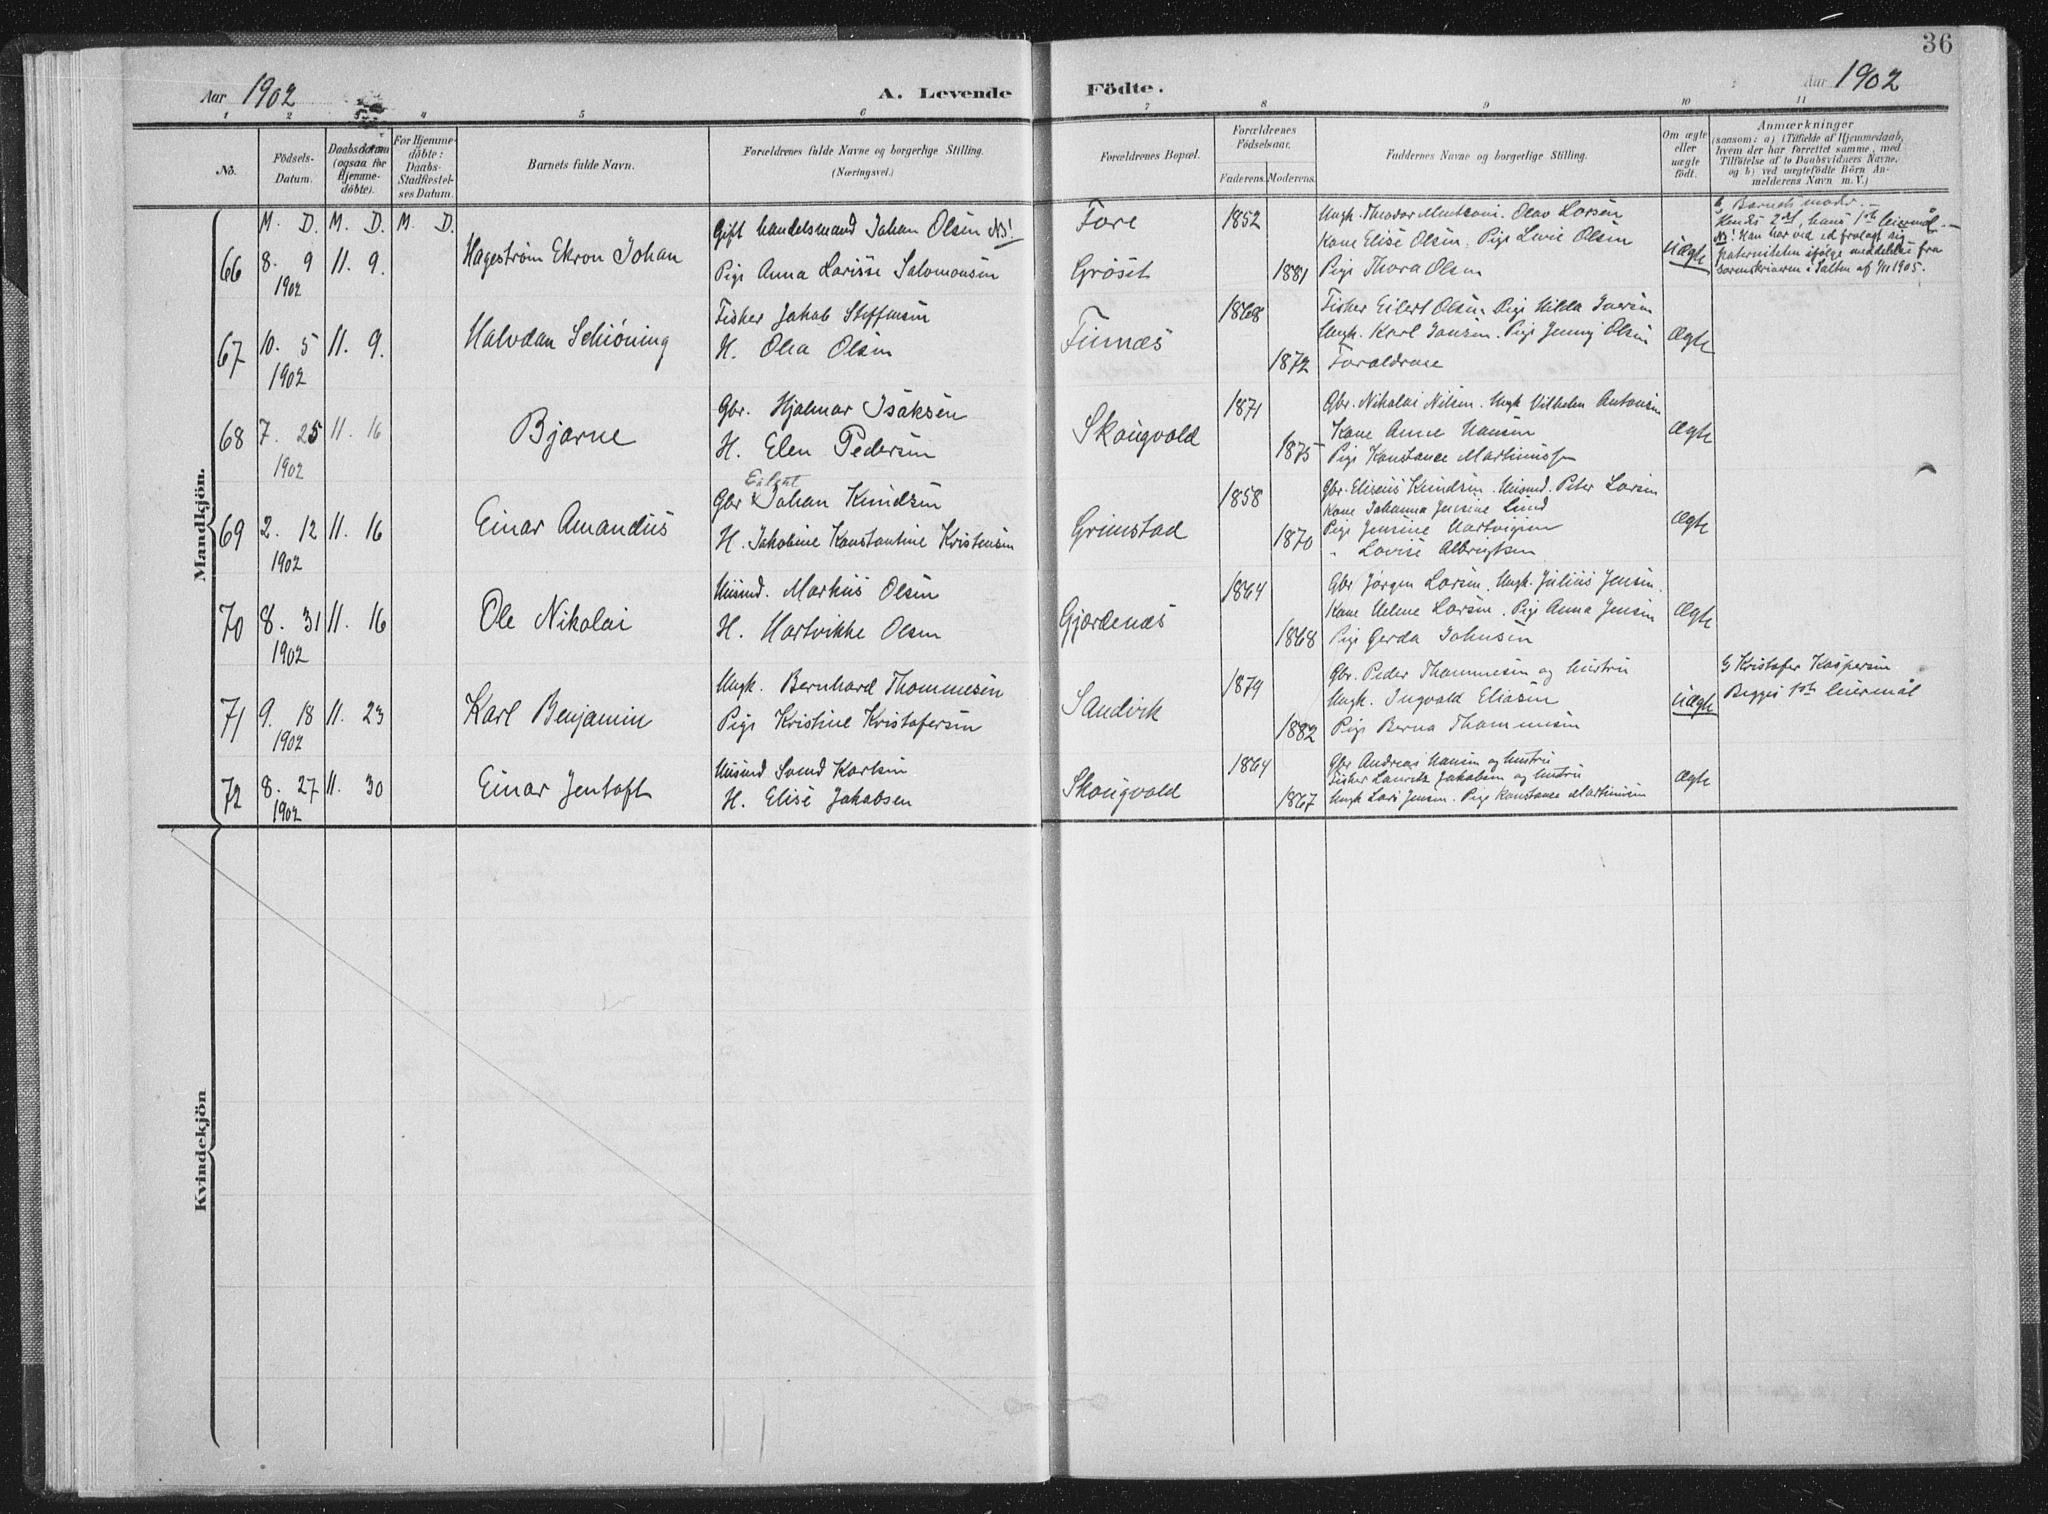 36
Aar 1902
A. Levende Födte.
Aar 1902
1 2 3 4 5 6 7 8 9 10 11
No.
Födsels-Datum.
Daabsdatum (ogsaa for Hjemmedöbte).
For Hjemmedöbte: Daabs-Stadfæstelses Datum.
Barnets fulde Navn.
Forældrenes fulde Navne og borgerlige Stilling.
(Næringsvei.)
Forældrenes Bopæl.
Forældrenes Födselsaar.
Faderens. Moderens.
Faddernes Navne og borgerlige Stilling.
Om ægte eller uægte födt.
Anmærkninger
(saasom: a) i Tilfælde af Hjemmedaab,
hvem der har forrettet samme, med
Tilföielse af to Daabsvidners Navne,
og b) ved uægtefödte Börn Anmelderens Navn m. V.)
Mandkjön.
M. D. M. D. M. D.
66 8. 9 1902 11. 9.
Hagestrøm Ekron Johan
Gift handelsmand Johan Olsen NB!
Pige Anna Larisse Salomonsen
Fore
Grøset
1852
1881
Ungk. Theodor Mentzoni. Olav Larsen
Kone Elise Olsen. Pige Lovise Olsen
Pige Thora Olsen
Uægte
b, Barnets moder.
Hendes 2det, hans 1ste leiermål.
NB! Han har ved ed fralagt sig
paterniteten ifølge meddelelse fra
sorenskriveren i Salten af 1905.
67 10. 5 1902 11. 9.
Halvdan Schiøning
Fisker Jakob Steffensen
H. Olea Olsen
Finnæs
1868
1872
Fisker Eilert Olsen. Pige Hilda Iversen
Ungk. Karl Jansen. Pige Jenny Olsen
Forældrene
Ægte
68 7. 25 1902 11. 16
Bjarne
Gbr. Hjalmar Isaksen
H. Elen Pedersen
Skougvold
1871
1875
Gbr. Nikolai Nilsen. Ungk Vilhelm Antonsen
Kone Anne Hansen
Pige Konstance Martinussen
Ægte
69 2. 12 1902 11. 16
Einar Amandus
Gbr Johan Knudsen
H. Jakobine Konstantine Kristensen
Grimstad
1858
1870
Gbr. Eliseus Knudsen. Husmd. Peter Larsen
Kone Johanna Jensine Lund
Pige Jensine Hartvigsen
" Lovise Albrigtsen
Ægte
70 8. 31 1902 11. 16
Ole Nikolai
Husmd. Markus Olsen
H. Hartvikke Olsen
Gjærdenæs
1864
1868
Gbr Jørgen Larsen. Ungk. Julius Jensen.
Kone Helene Larsen. Pige Anna Jensen
Pige Gerda Johnsen
Ægte
71 9. 18 1902 11. 23
Karl Benjamin
Ungk. Bernhard Thommesen
Pige Kristine Kristofersen
Sandvik
1879
1882
Gbr. Peder Thommesen og hustru
Ungk. Ingvald Eliasen
Pige Berna Thommesen
Uægte
G Kristofer Kaspersen
Begges 1ste leiermål
72 8. 27 1902 11. 30
Einar Jentoft
Husmd Svend Karlsen
H. Elise Jakobsen
Skougvold
1864
1867
Gbr Andreas Hansen og hustru
Fisker Lauritz Jakobsen og hustru
Ungk Lars Jensen. Pige Konstance Martinusen
Ægte
Kvindekjön